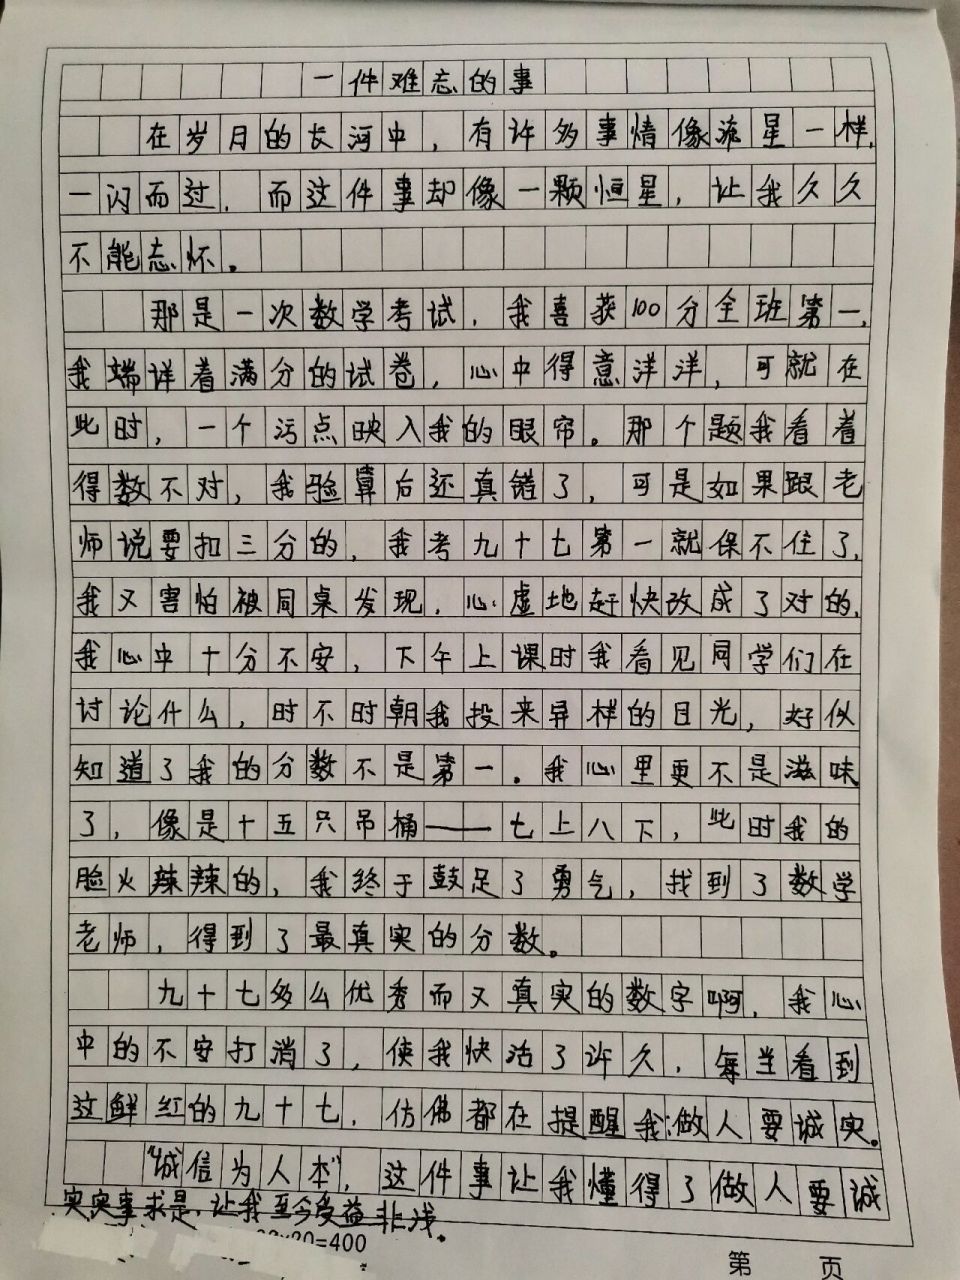 一件难忘的事
在岁月的长河中，有许多事情像流星一样，
一闪而过，而这件事却像一颗恒星，让我久久
不能忘怀。
那是一次数学考试，我喜获100分全班第一，
我端详着满分的试卷，心中得意洋洋，可就在
此时，一个污点映入我的眼帘。那个题我看着
得数不对，我验算后还真错了，可是如果跟老
师说要扣三分的，我考九十七第一就保不住了，
我又害怕被同桌发现，心虚地赶快改成了对的，
我心中十分不安，下午上课时我看见同学们在
讨论什么，时不时朝我投来异样的目光，好似
知道了我的分数不是第一。我心里更不是滋味
了，像是十五只吊桶——七上八下，此时我的
脸火辣辣的，我终于鼓足了勇气，找到了数学
老师，得到了最真实的分数。
九十七多么优秀而又真实的数字啊，我心
中的不安打消了，使我快活了许久，每当看到
这鲜红的九十七，仿佛都在提醒我:做人要诚实。
“诚信为人本”，这件事让我懂得了做人要诚
实实事求是，让我至今受益非浅。
20=400
第 页